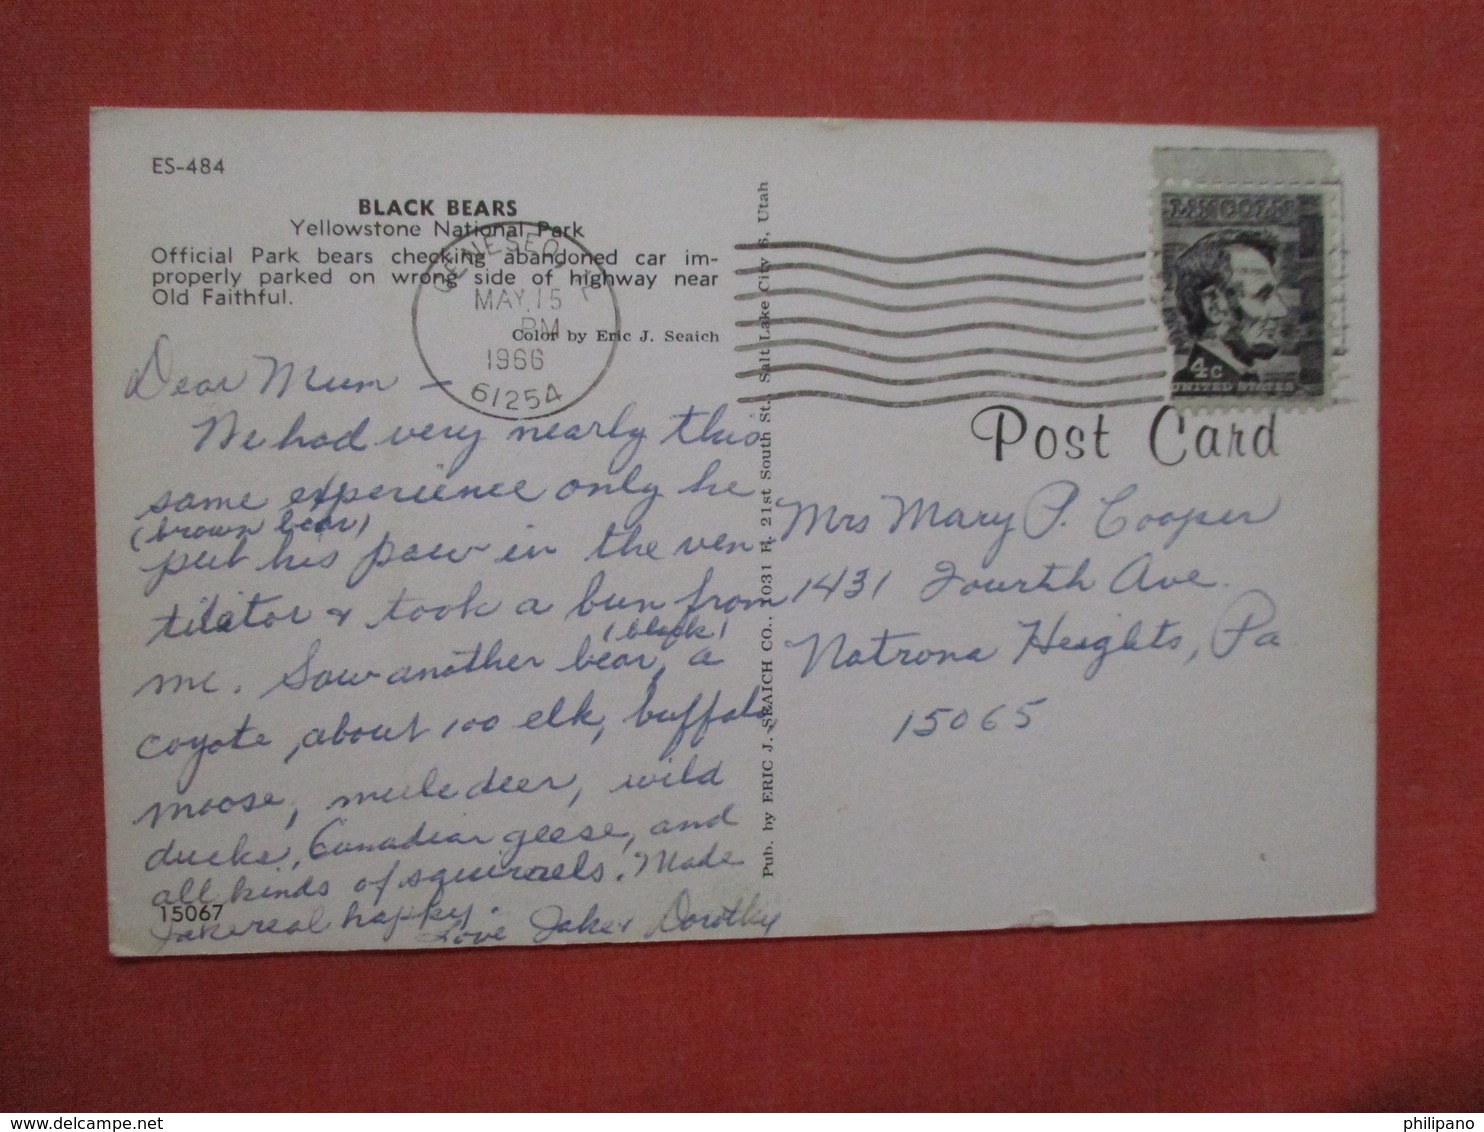 ES-484
BLACK BEARS
Yellowstone National Park
Official Park bears checking abandoned car im-
properly parked on wrong side of highway near
Old Faithful.
Color by Eric J. Seaich
GENESEO IL
MAY 15
PM
1966
61254
Dear Mum -
We had very nearly this
same experience only he
(brown bear)
put his paw in the ven
tilator & took a bun from
me. Saw another bear, a
(black)
coyote, about 100 elk, buffalo,
moose, mule deer, wild
ducks, Canadian geese, and
all kinds of squirrels. Made
Jake real happy.
Love Jake & Dorothy
15067
Pub. by ERIC J. SEAICH CO., 1031 E. 21st South St., Salt Lake City 6, Utah
LINCOLN
4c
UNITED STATES
Post Card
Mrs Mary P. Cooper
1431 Fourth Ave.
Natrona Heights, Pa
15065
http://www.delcampe.net
philipano